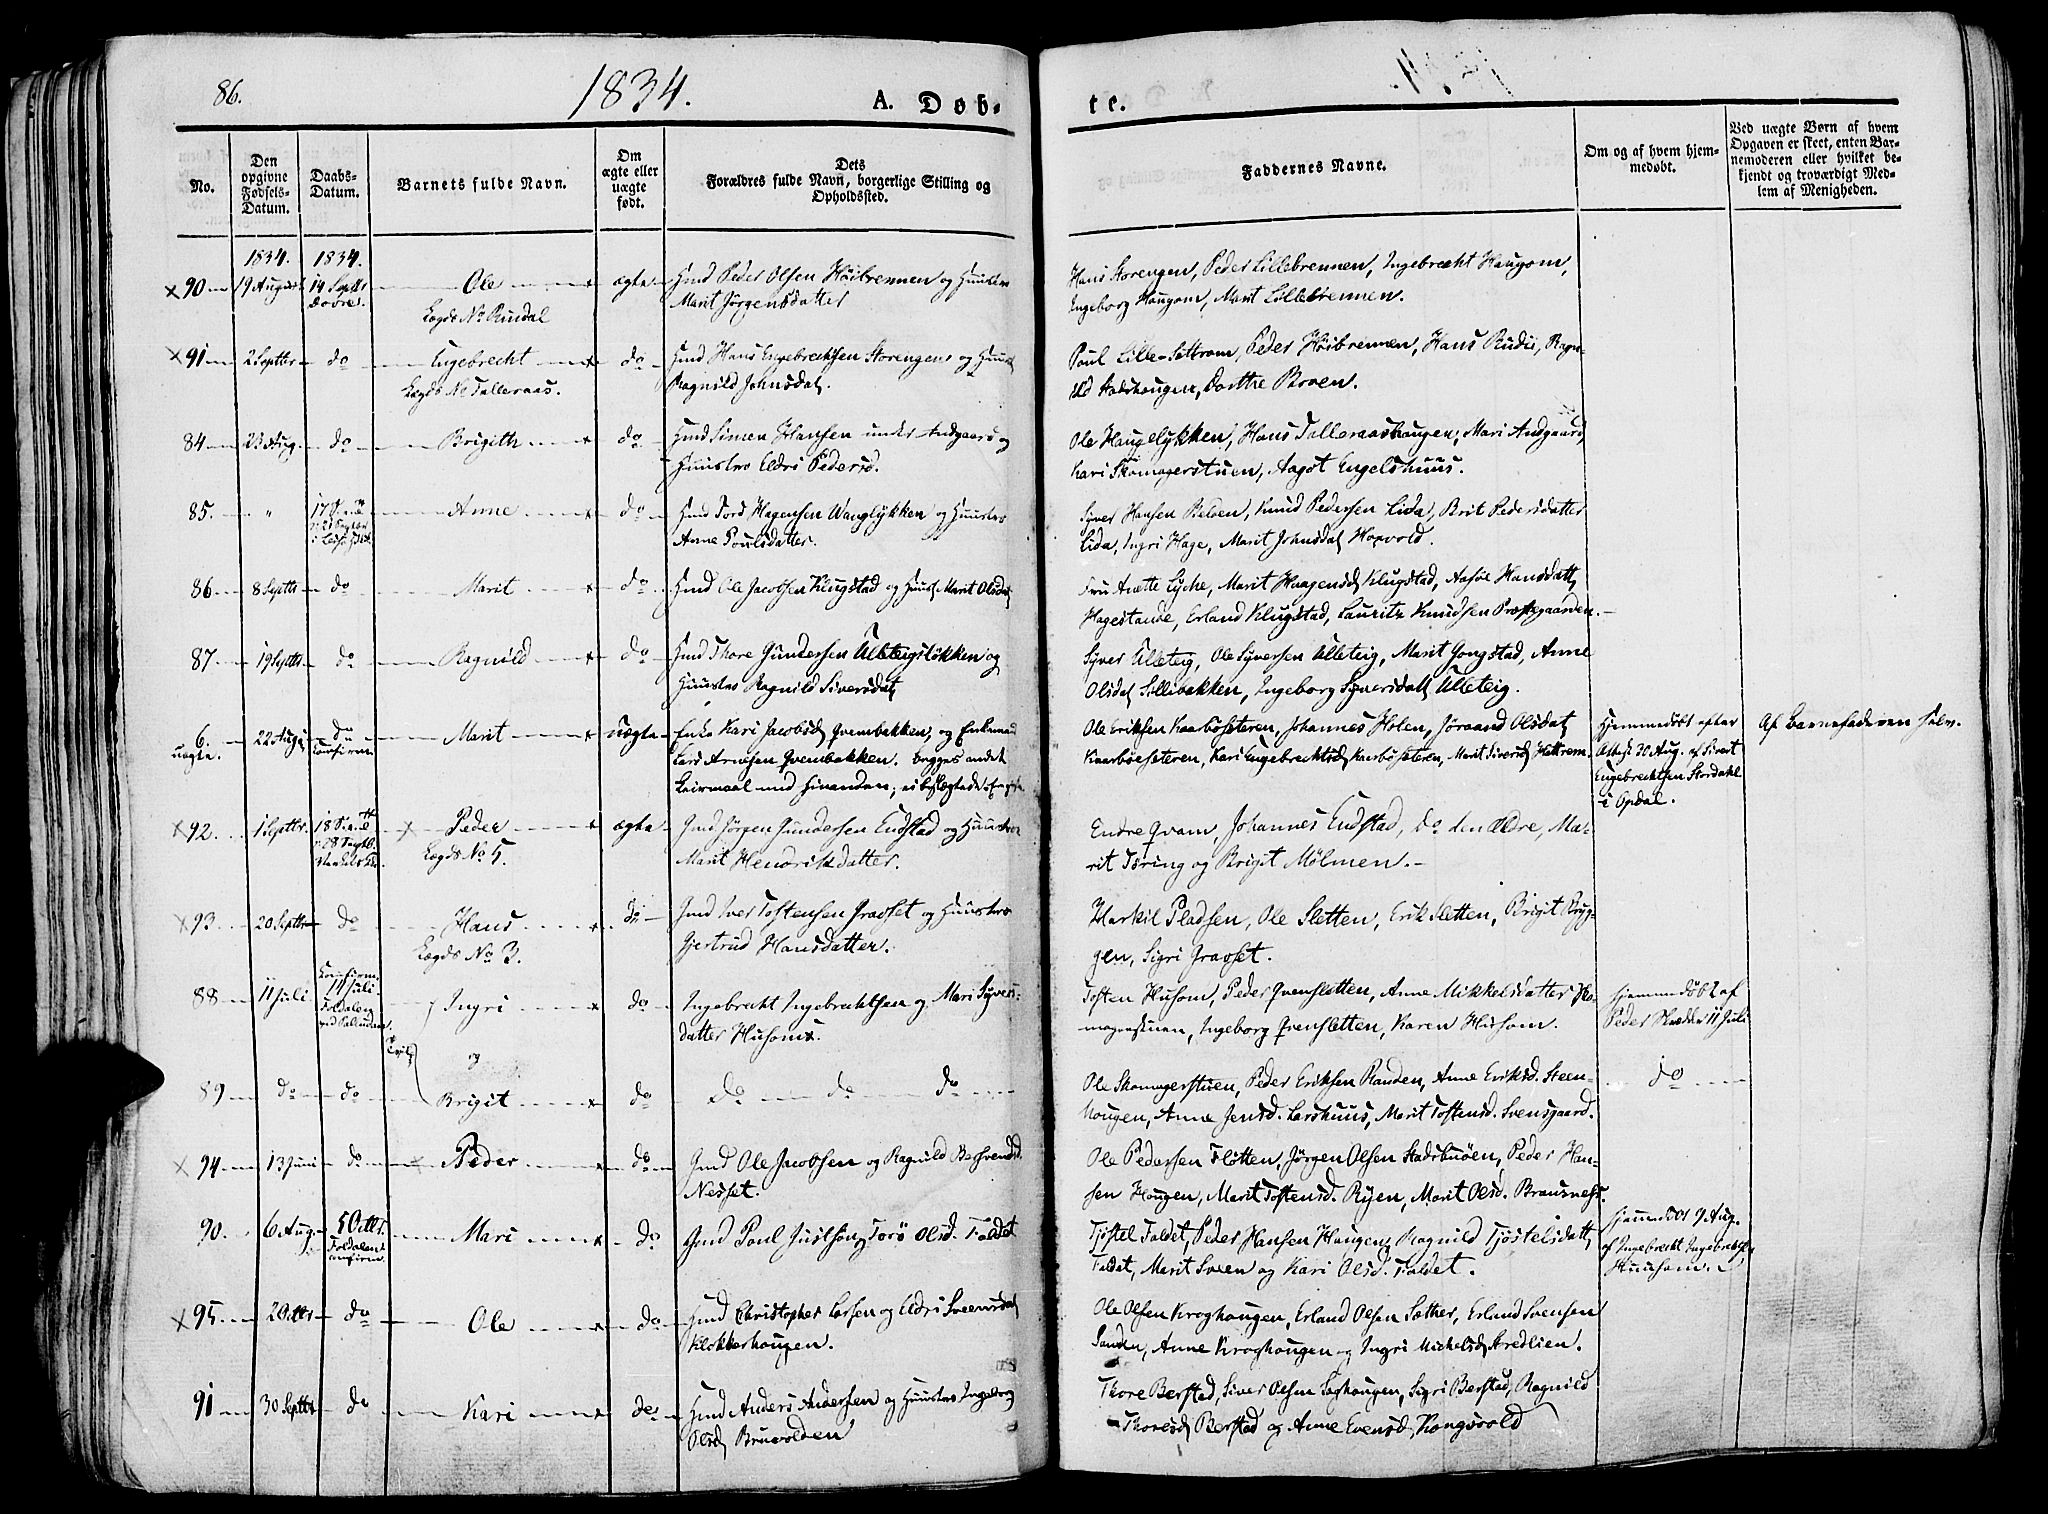 86.
1834.
A. Døb-
te.
No.
Den opgivne Fødsels-Datum.
Daabs-Datum.
Barnets fulde Navn.
Om ægte eller uægte født.
Dets Forældres fulde Navn, borgerlige Stilling og Opholdssted.
Faddernes Navne.
Om og af hvem hjem-medøbt.
Ved uægte Børn af hvem Opgaven er skeet, enten Bar-nemoderen eller hvilket be-kjendt og troværdigt Med-lem af Menigheden.
1834. 1834.
×90 19 August 14 Septbr Dovre. Ole ægte Gmd Peder Olsen Höibrennen og Huustro
Lægds No Rindal Marit Jörgensdatter
Hans Storengen, Peder Lillebrennen, Ingebrecht Haugom,
Ingeborg Haugom, Marit Lillebrennen.
×91 2 Septbr do Engebrecht do Hmd Hans Engebrechtsen Storengens og Huust
Lægds No Talleraas. Ragnild Johnsdat.
Poul Lille-Settrom, Peder Höibrennen, Hans Rudi, Ragn-
ild Stadshougen, Dorthe Broen.
84 23 Aug. do Brigith do Hmd Simen Hansen under Andgaard og
Huustro Eldri Pedersd.
Ole Haugelykken, Hans Talleraashaugen, Mari Andgaard,
Kari Skomagerstuen, Aagot Engelshuus.
85. " 17 S. e. T. 21 Septbr Lesjø Anne do Hmd Tord Hagensen Wanglykken og Huustro
Anne Poulsdatter.
Syver Hansen Beløen, Knud Pedersen Lida, Brit Pedersdatter
Lida, Ingri Hage, Marit Johnsdat Horvold.
86 8 Septbr do Marit do Hmd Ole Jacobsen Klugstad og Huust Marit Olsdat
Fru Anette Lyche, Marit Haagensd Klugstad, Aasøe Hansdatt,
Hagestande, Erland Klugstad, Lauritz Knudsen Præstegaarden.
87 19 Septbr do Ragnild do Hmd Thore Gundersen Ulleteigsløkken og
Huustro Ragnild Siversdat
Syver Ulleteig, Ole Syversen Ulleteig, Marit Jongstad, Anne
Olsdat Sillibakken, Ingeborg Syversdatt Ulleteig.
6. uægte. 22 Aug. do Confirm Marit uægte Enke Kari Jacobsd Qvembakken, og Enkemand
Lars Arnesen Qvembakken. begges andet
Leiermaal med hinanden;
Ole Eriksen Kaarbøseteren, Johannes Holen, Jøraand Olsdat
Kaarbøeseteren, Kari Engebrechtsd Kaarbøseteren, Marit Siversd Hattrem.
Hjemmedøbt efter
30 Aug. af Sivert
Engebrechtsen Stordahl
i Opdal.
Af Barnefaderen selv.
×92. 1 Septbr. 18 S. e. T. 28 Septb. × Peder ægte Gmd Jörgen Gundersen Endstad og Huustro
Lægds No 5. Marit Hendriksdatter.
Endre Qvam, Johannes Endstad, do den ældre, Ma-
rit Töring og Brigit Mölmen.
×93 20 Septbr do Hans do Gmd Iver Tostensen Gravset og Huustro
Lægds No 3. Gjertrud Hansdatter.
Harkil Pladsen, Ole Sletten, Erik Sletten, Brigit Bryg-
gen, Sigri Gravset.
88 11 Juli Confirm. 14 Juli Foldalen Ingri do Ingebrekt Ingebrektsen og Mari Syvers-
datter Husom.
Tosten Husom, Peder Qvensletten, Anne Mikkelsdatter Sko-
magerstuen, Ingeborg Qvensletten, Karen Husom.
Hjemmedöbt af
Peder Skredder 11 Juli
Tvil.
og
89 do do Brigit do do do do
Ole Skomagerstuen, Peder Eriksen Randen, Anne Eriksd. Steen-
hougen, Anne Jensd. Larshuus, Marit Tostensd. Svensgaard.
do
×94 13 Juni do × Peder do Gmd Ole Jacobsen og Ragnild Bersvendsd.
Nesset.
Ole Pedersen Flötten, Jörgen Olsen Stadsbuöen, Peder Han-
sen Hougen, Marit Tostensd. Ryen, Marit Olsd. Bransnes.
90. 6 Aug. 5 Octbr. Foldalen Confirm. Mari do Gmd Paul Justsen, Torø Olsd. Foldet
Tjöstel Foldet, Peder Hansen Haugen, Ragnild Tjöstelsdatt,
Foldet, Marit Sveen og Kari Olsd. Foldet.
Hjemmedöbt 9 Aug.
af Ingebrecht Ingebrechts.
Huusom.
×95 2 Octbr do Ole do Hmd Christopher Larsen og Eldri Svensdat
Klokkerhougen.
Ole Olsen Kroghougen, Erland Olsen Sæther, Erland Svensen
Randen, Anne Kroghougen og Ingri Michelsd Stredlien.
91 30 Septbr do Kari do Hmd Anders Andersen og Huustro Ingeborg
Olsd Bruvolden
Thore Berstad, Siver Olsen Loghougen, Sigri Berstad, Ragnild
Thoresd Berstad og Anne Evensd, Kongsvold